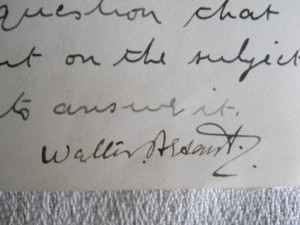 question that
ut on the subject
to answer it.
Walter Besant.